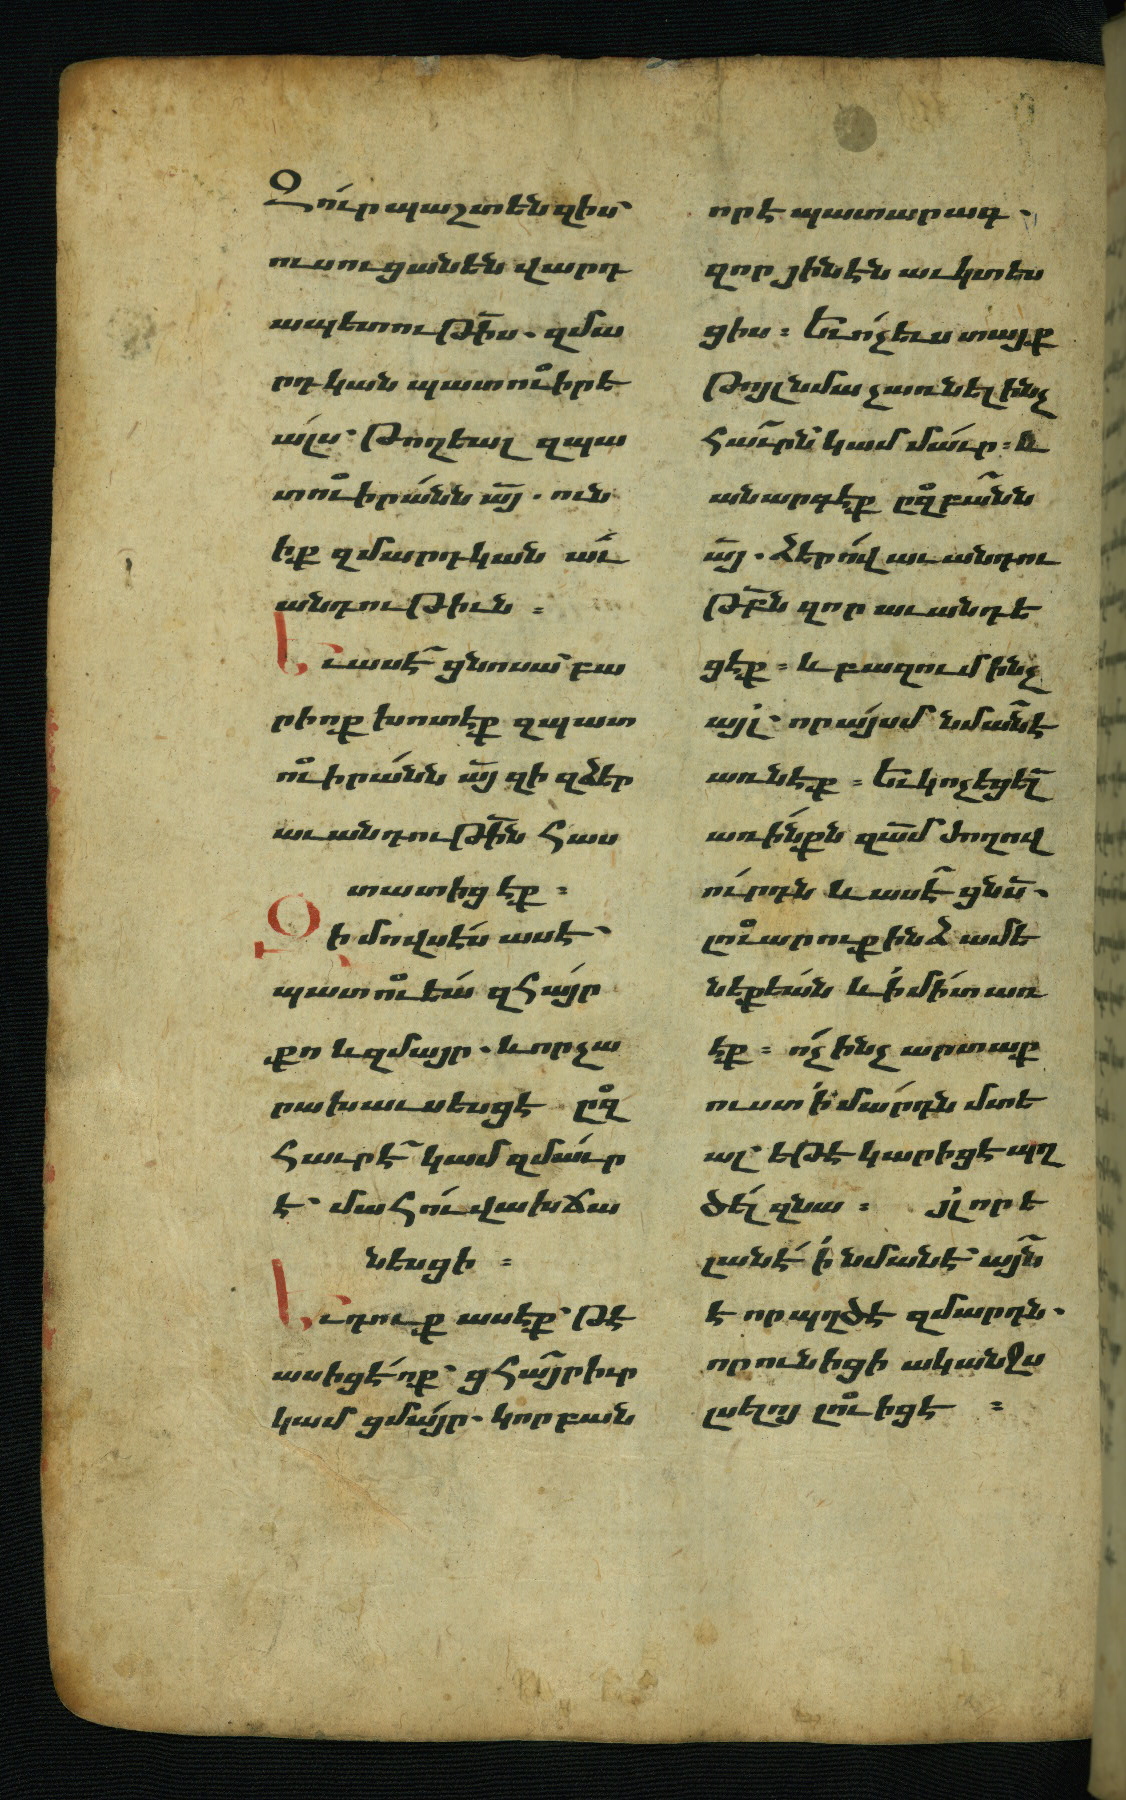 Զուր պաշտեն զիս՝
ուսուցանեն վարդ
ապետութի̅ս. զմա
րդկան պատուիրե
ալս՝ Թողեալ զպա
տուիրանն ա̅յ. ուն
իք զմարդկան աւ
անդութիւն ։
Եւ ասէ ցնոսա՝ բա
րիոք խոտէք զպատ
ուիրանն ա̅յ զի զձեր
աւանդութի̅ն հաս
տատիցէք ։
Զի մովսէս ասէ՝
պատուեա զհայր
քո և զմայր. և որ չա
րախաւսեսցէ ըզ
հաւրէ՝ կամ զմաւր
է՝ մահու վախճա
նեսցի ։
Եւ դուք ասէք՝ թէ
ասիցէ ոք՝ ցհայր իւր
կամ ցմայր. կորբան
որ է պատարագ.
զոր յինէն աւգտես
ցիս ։ Եւ ոչ ևս տայք
թոյլ նմա չառնել ինչ
հաւրն կամ մաւր ։ և
անարգէք ըզբանն
ա̅յ. ձերով աւանդու
թբ̅ն զոր աւանդե
ցէք ։ և բազում ինչ
այլ՝ որ այսմ նման է
առնէք ։ Եւ կոչեցել̅
առ ինքն զա̅մ ժողով
ուրդն և ասէ ցնս̅.
լուարուք ինձ ամե
նեքեան և ի միտ առ
էք ։ ոչ ինչ արտաք
ուստ ի մարդն մտե
ալ՝ եթէ կարիցէ պղ
ծել զնա ։ յլ որ ե
լանէ ի նմանէ՝ այն
է որ պղծէ զմարդն.
որ ունիցի ականջս
լսելոյ լուիցէ ։